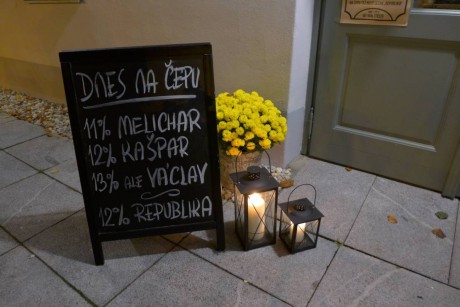 DNES NA ČEPU
11% MELICHAR
12% KAŠPAR
13% ALE VÁCLAV
12% REPUBLIKA